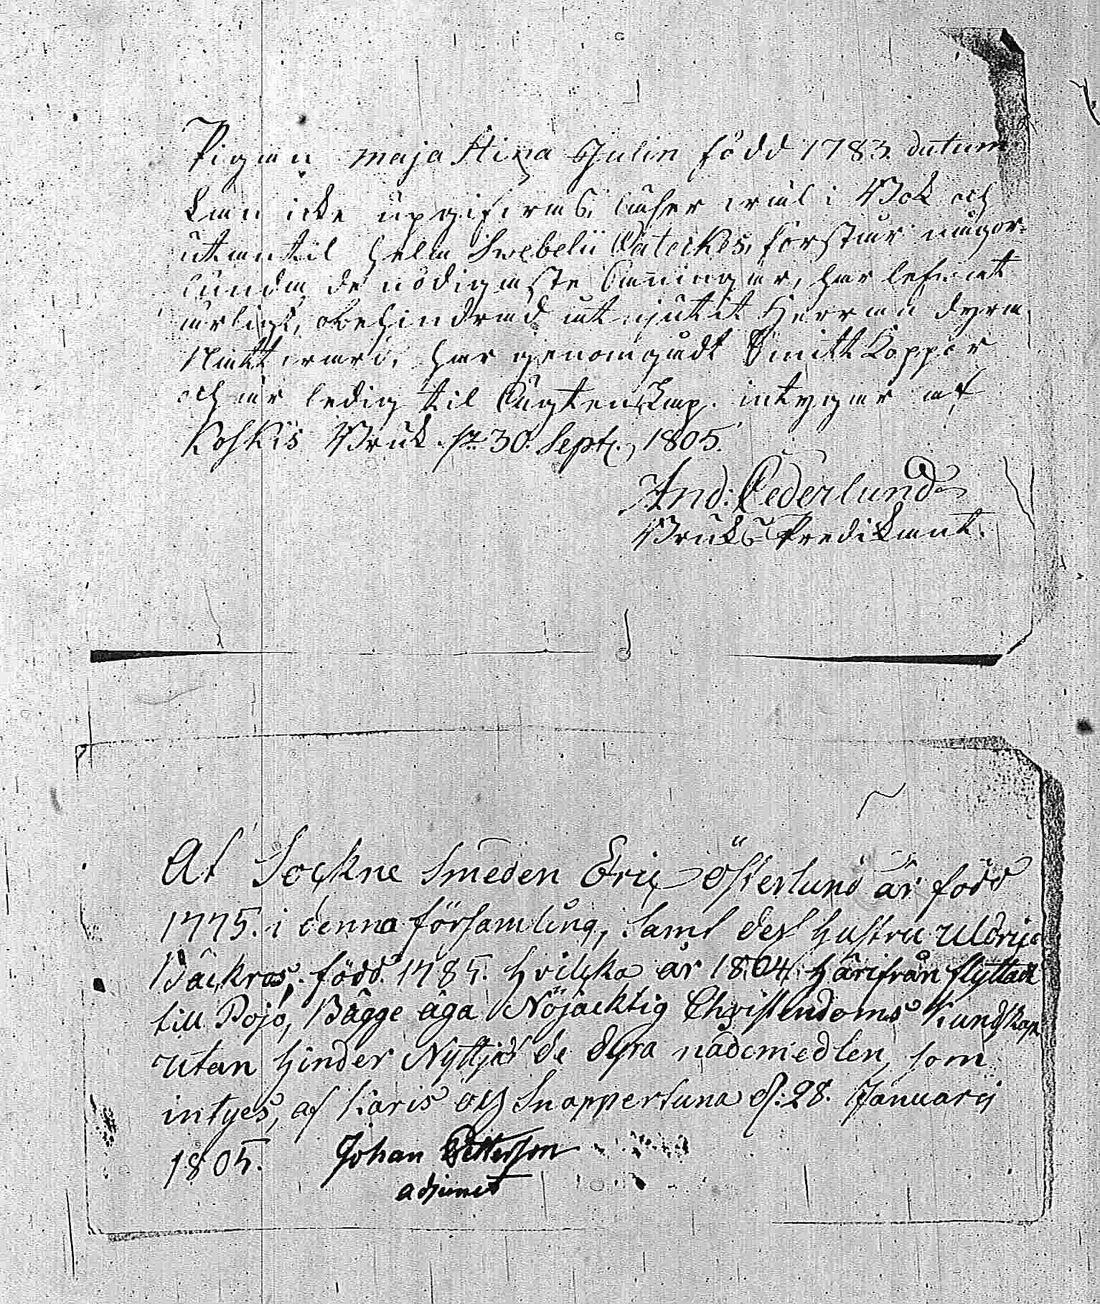 Pigan Maja Stina Julin född 1783. datum
kan icke upgifvas, läser wäl i Bok och
utantil hela Swebelii Cateches, förstår någor-
lunda de nödigaste Sanningar, har lefwat
ärligt, obehindrad at njutit Herrans dyra
Nattward, har genomgådt Smitt Koppor
och är ledig til Ägtenskap. intygar af
Koskis Bruk. d. 30. Sept:, 1805.
And: Cederlund
Bruks-Predikant.
At Sockne Smeden Eric Österlund är född
1775. i denna församling, samt dess Hustru Uldrica
Bäckros, född 1785. hvilcka år 1804 härifrån flyttade
till Pojo, Bägge äga Nöjacktig Christendoms Kundskap
utan hinder Nyttjat de dyra nådemedlen, som
intyges, af Karis och Snappertuna d: 28. Januarij
1805. Johan Petterson
adjunct